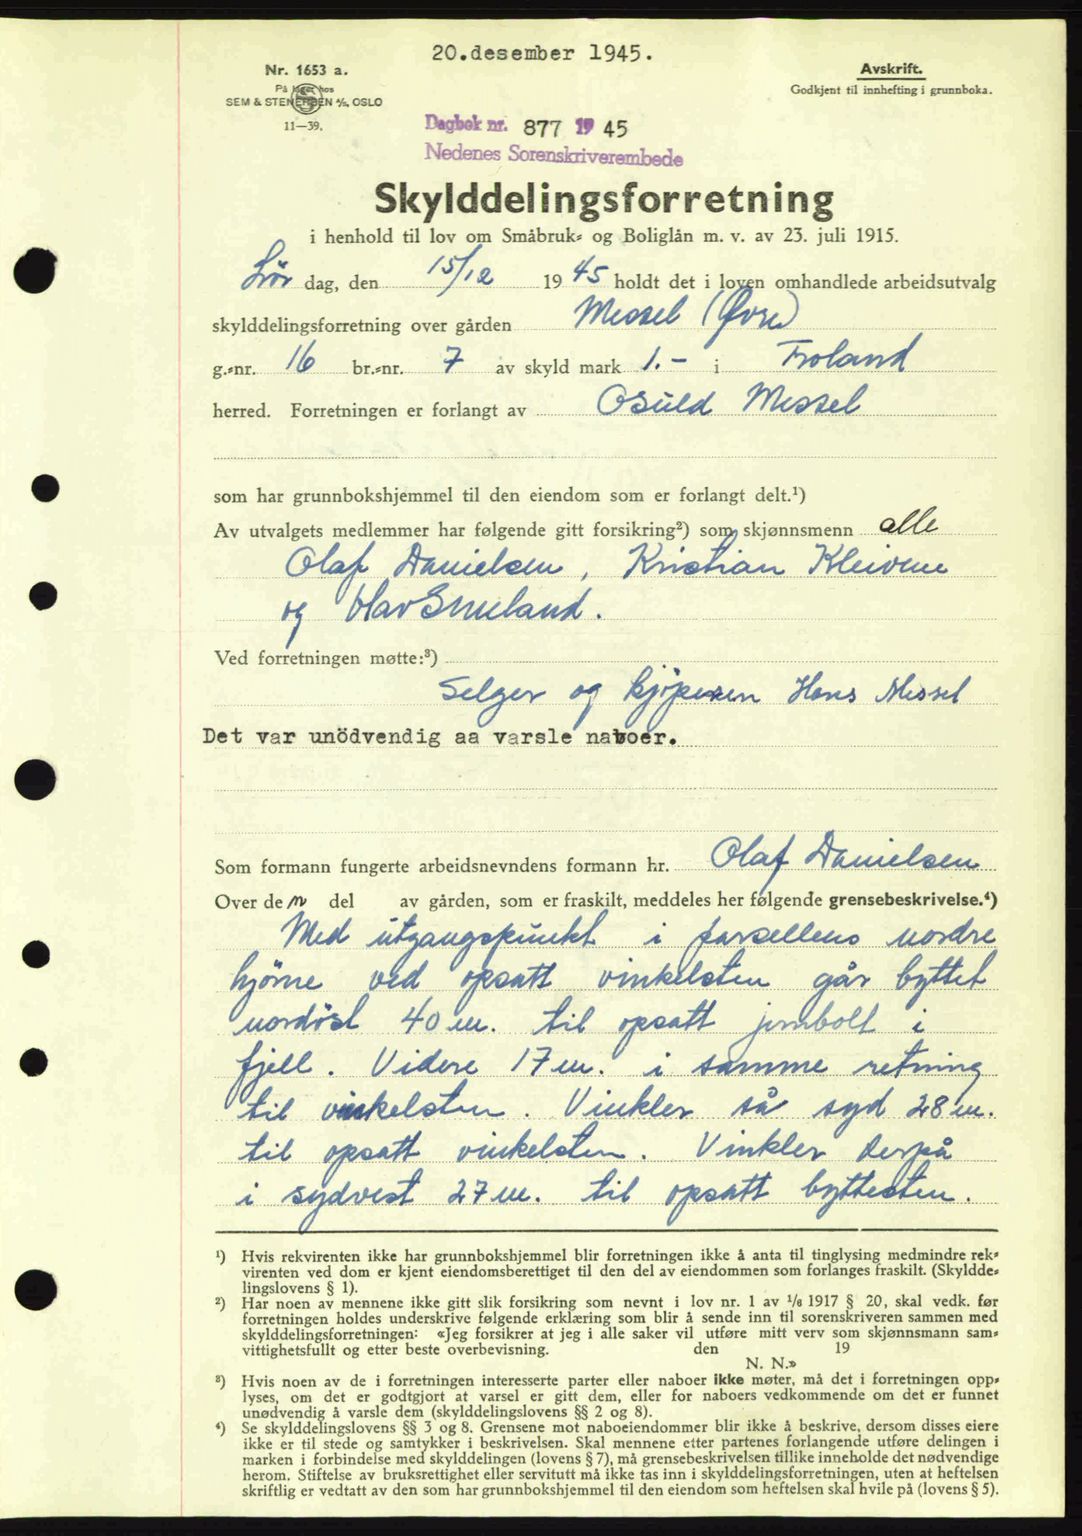 20.desember 1945.
Nr. 1653 a.
På lager hos
SEM & STENERSEN A/S, OSLO
11—39.
Avskrift.
Godkjent til innhefting i grunnboka.
Dagbok nr. 877 1945
Nedenes Sorenskriverembede
Skylddelingsforretning
i henhold til lov om Småbruk- og Boliglån m. v. av 23. juli 1915.
Lør dag, den 15/12 1945 holdt det i loven omhandlede arbeidsutvalg
skylddelingsforretning over gården Messel (Øvre)
g.-nr. 16 br.-nr. 7 av skyld mark 1.- i Froland
herred. Forretningen er forlangt av Osuld Messel
som har grunnbokshjemmel til den eiendom som er forlangt delt.¹)
Av utvalgets medlemmer har følgende gitt forsikring²) som skjønnsmenn alle
Olaf Danielsen, Kristian Kleivene
og Olav Smeland.
Ved forretningen møtte:³)
Selger og kjøperen Hans Messel
Det var unödvendig aa varsle naboer.
Som formann fungerte arbeidsnevndens formann hr. Olaf Danielsen
Over den del av gården, som er fraskilt, meddeles her følgende grensebeskrivelse.⁴)
Med utgangspunkt i parsellens nordre
hjørne ved opsatt vinkelsten går byttet
nordöst 40 m. til opsatt jernbolt i
fjell. Videre 17 m. i samme retning
til vinkelsten. Vinkler så syd 28 m.
til opsatt vinkelsten. Vinkler derpå
i sydvest 27 m. til opsatt byttesten.
¹) Hvis rekvirenten ikke har grunnbokshjemmel blir forretningen ikke å anta til tinglysing medmindre rek-
virenten ved dom er kjent eiendomsberettiget til den del av eiendommen som forlanges fraskilt. (Skyldde-
lingslovens § 1).
²) Har noen av mennene ikke gitt slik forsikring som nevnt i lov nr. 1 av 1/6 1917 § 20, skal vedk. før
forretningen holdes underskrive følgende erklæring som blir å sende inn til sorenskriveren sammen med
skylddelingsforretningen: «Jeg forsikrer at jeg i alle saker vil utføre mitt verv som skjønnsmann sam-
vittighetsfullt og etter beste overbevisning. den 19
N. N.»
³) Hvis noen av de i forretningen interesserte parter eller naboer ikke møter, må det i forretningen opp-
lyses, om det er godtgjort at varsel er gitt dem, eller for naboers vedkommende om det er funnet
unødvendig å varsle dem (skylddelingslovens §§ 2 og 8).
⁴) Se skylddelingslovens §§ 3 og 8. Grensene mot naboeiendommer blir ikke å beskrive, dersom disses eiere
ikke er til stede og samtykker i beskrivelsen. Skal mennene etter partenes forlangende utføre delingen i
marken i forbindelse med skylddelingen (lovens § 7), må grensebeskrivelsen tillike inneholde det nødvendige
herom. Stiftelse av bruksrettighet eller servitutt må ikke tas inn i skylddelingsforretningen, uten at heftelsen
skriftlig er vedtatt av den som har grunnbokshjemmel til den eiendom som heftelsen skal hvile på (lovens § 5).